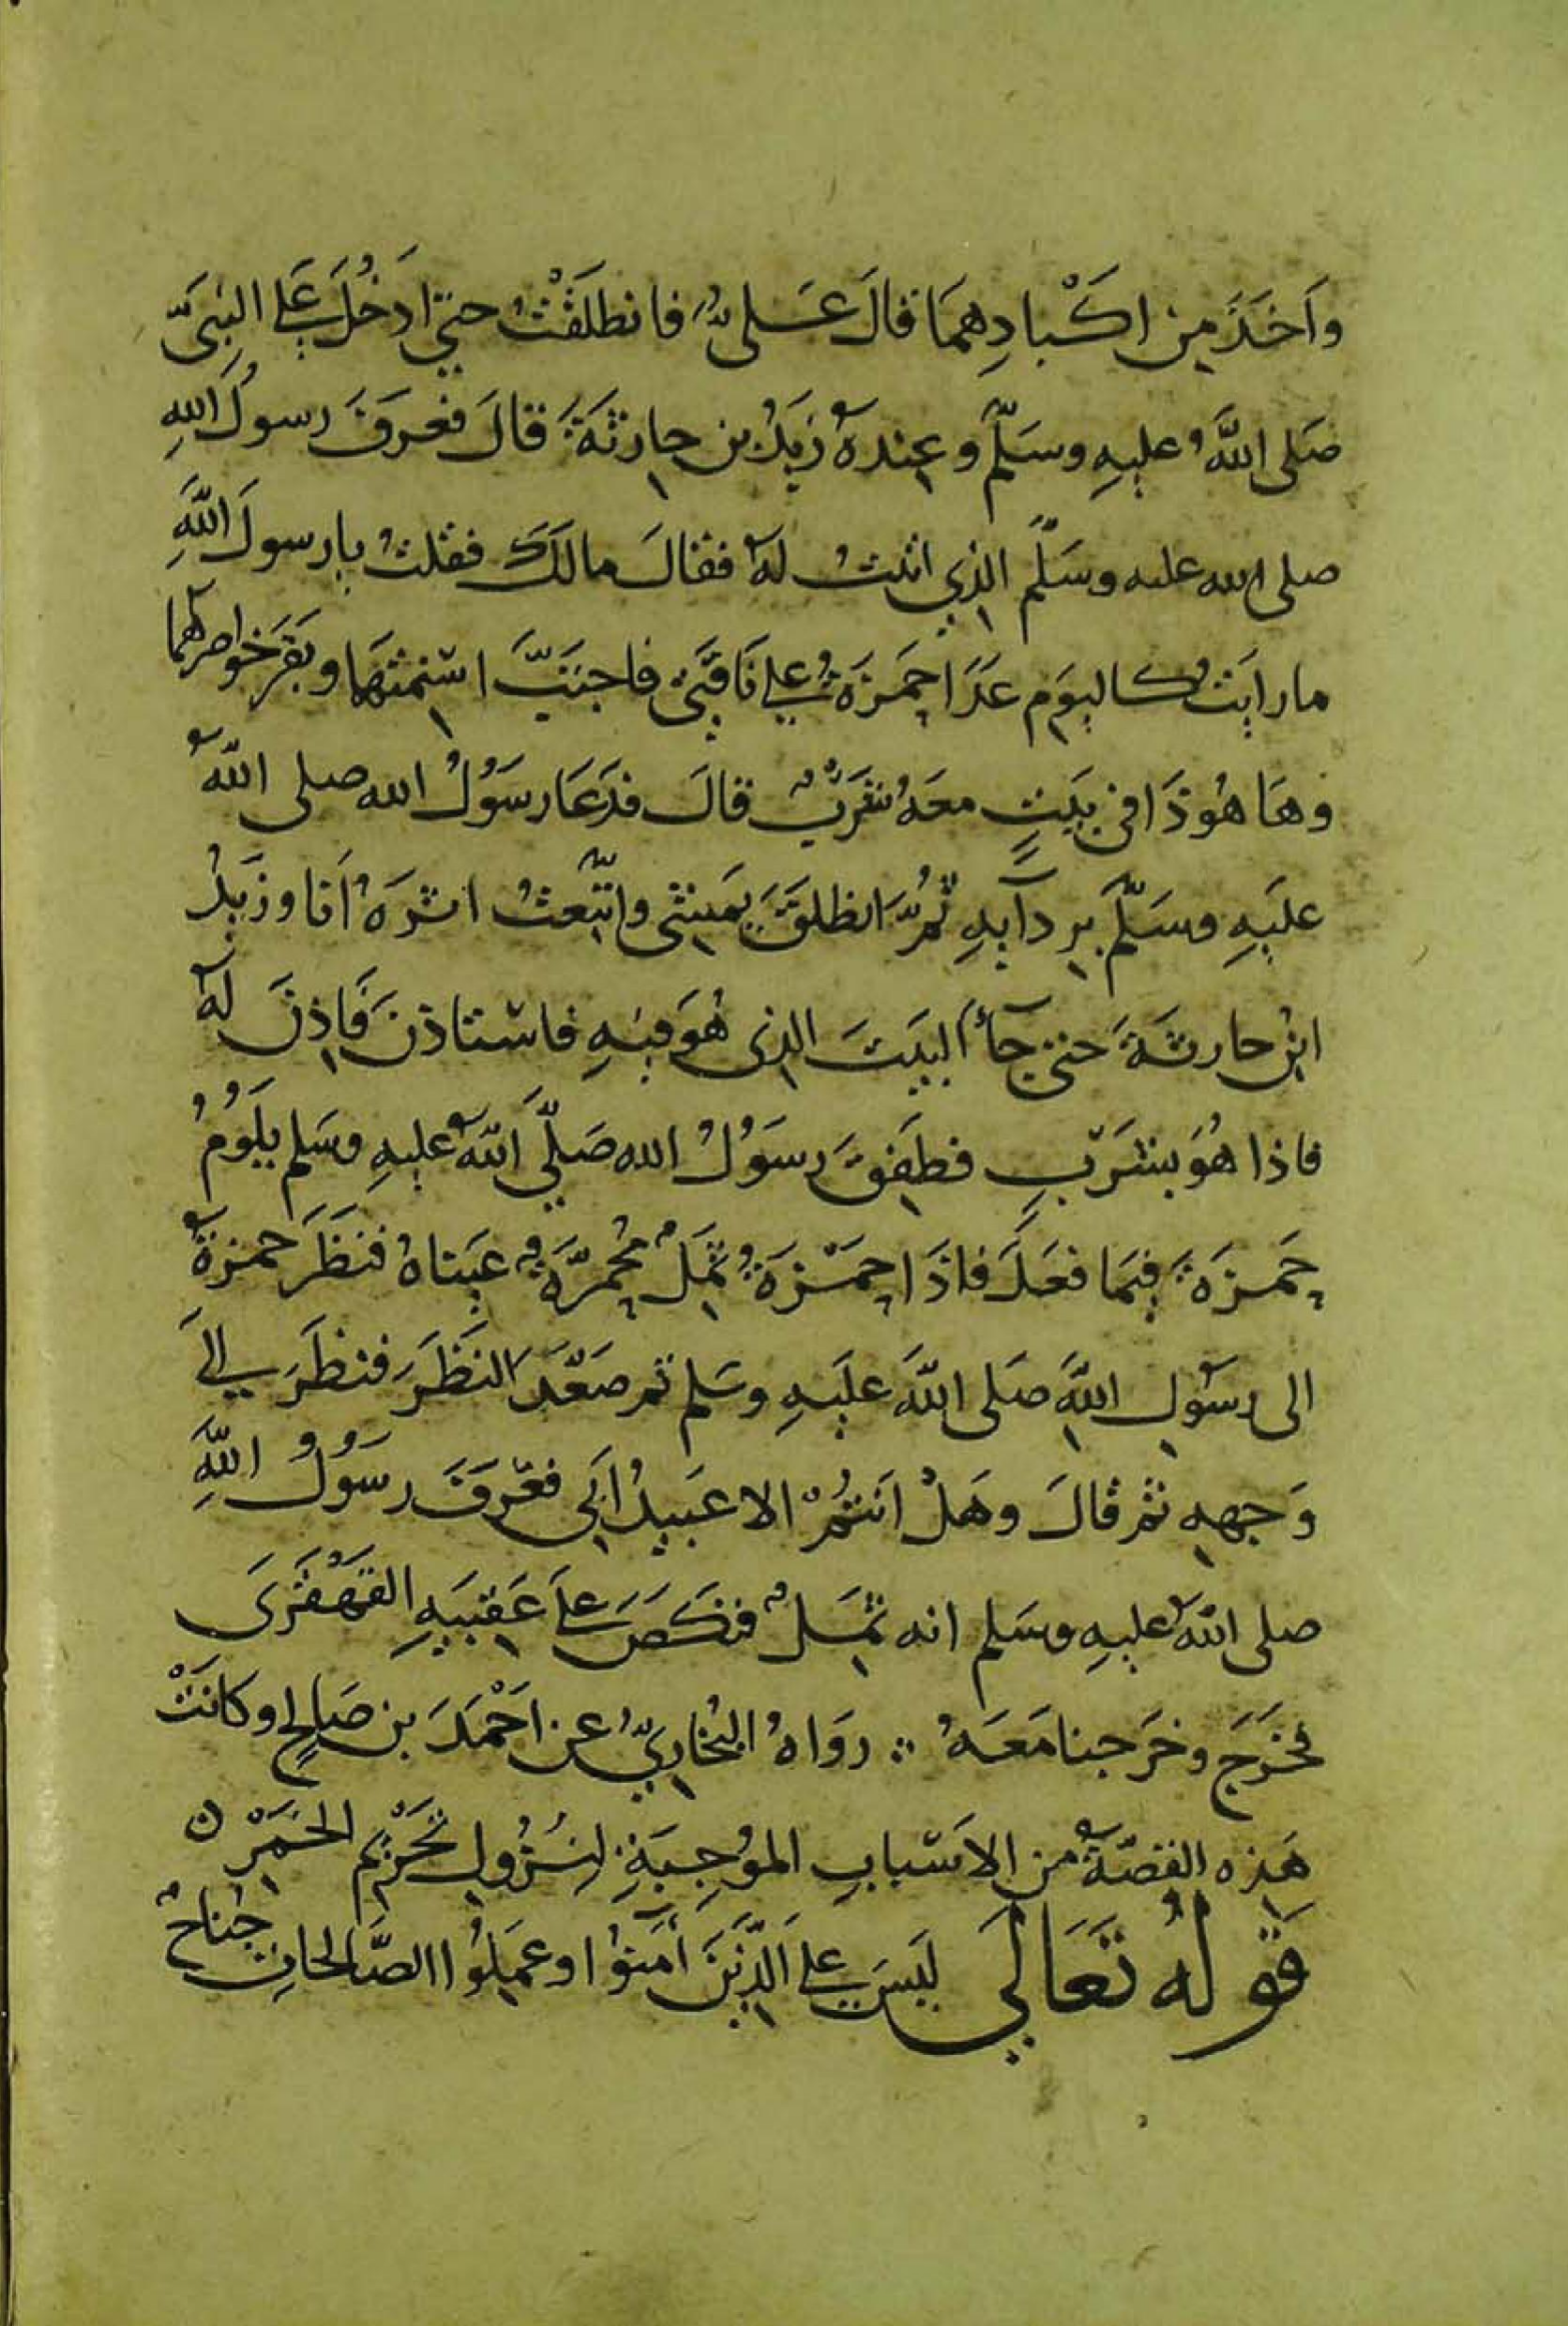 وَاَخَذَ مِن اكْبادِهِمَا قالَ عَلىٌّ فانطلَقْتُ حتى ادخُلَ على النبىِّ
صَلى اللَّهُ عليهِ وسَلَّم وعِندهُ زيَدُ بن حارثَةَ قالَ فعَرفَ رسولُ اللهِ
صلى الله عليه وسَلَّم الذي اتيتُ لهُ فقالَ مالكَ فقلتُ يا رسولَ اللَّهِ
ما رايَتُ كاليوَم عَدَا حَمزَةُ على نَاقَتىَّ فاجتَبَّ اسْنمتهَا وبَقَر خواصرهما
وهَا هُوذَا فى بيَتٍ معَهُ شَرْبٌ قالَ فدَعَا رسَوُلُ الله صلى اللّهُ
عليَهِ وسَلَّم بِردآيِهِ ثمُرَّ انطلقَ يَمِشى واتَّبعتُ اثرَهُ اَنا وزيَدُ
ابنِ حارثَةَ حتى جآءَ البيَتَ الذى هُوَ فيهِ فاسْتاذنَ فَاذِنَ لهُ
فاذا هُوَ بشَرْبٍ فطَفِقَ رسَوُلُ الله صَلَّى اللّهُ عليهِ وسَلم يلَوُمُ
حَمزَةَ فِيمَا فعَلَ فاذَا حَمْزَةُ ثَمِلٌ مُحْمرَّةٌ عيَناهُ فنَظَرَ حمزةُ
الى رسَولِ اللَّهِ صَلى اللَّهُ عليَهِ وسَلم ثم صَعَّدَ النظَرَ فنظَرَ الىَ
وَجههِ ثم قالَ وهَلْ اَنتُمْ الا عَبيدُ ابىَ فعَرَفَ رسَوُلُ اللَّهِ
صلى اللهُ عليهِ وسَلم انه ثَمِلٌ فنكَصَ علَى عَقِبيَهِ القَهْقَرَى
فخرَجَ وخرَجنا معَهُ ∴ رَوَاهُ البُخاريُّ عن احَمْدَ بن صَالِحٍ وكانَتْ
هَذِه القصّةُ من الاَسْبابِ الموُجِبَةِ لِنزُولِ تحَرْيمِ الخَمرِْ ن
قَولُهُ تَعَالَى ليَسَ علَى الَّذينَ آمَنوُا وعَمِلوُا الصَّالحاتِ جُناحٌ